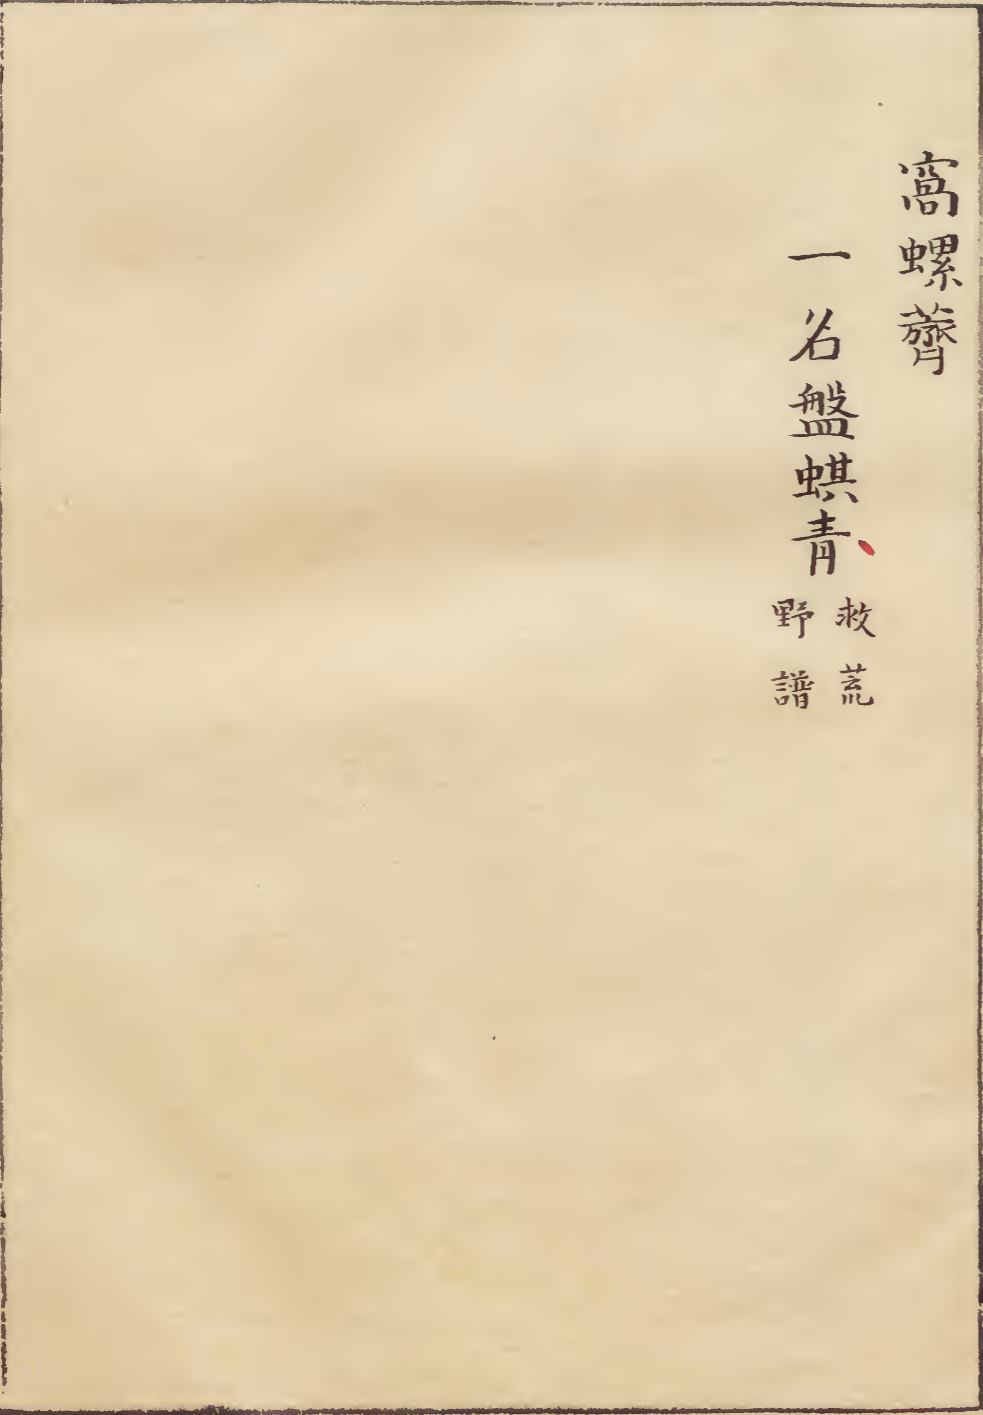 窩螺薺
一名盤蜞青救荒
野譜